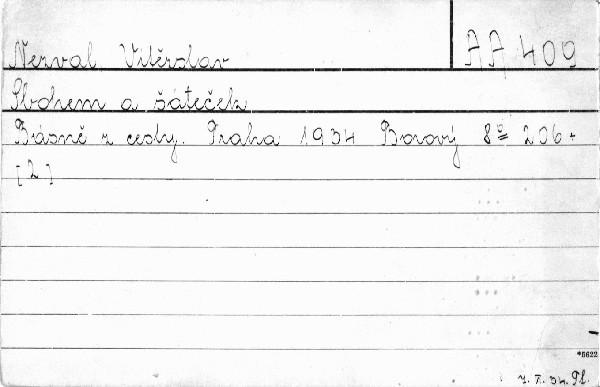 Nezval Vítězslav AA 409
Sbohem a šáteček
Básně z cesty. Praha 1934 Borový 8° 206+
[2]
*5622